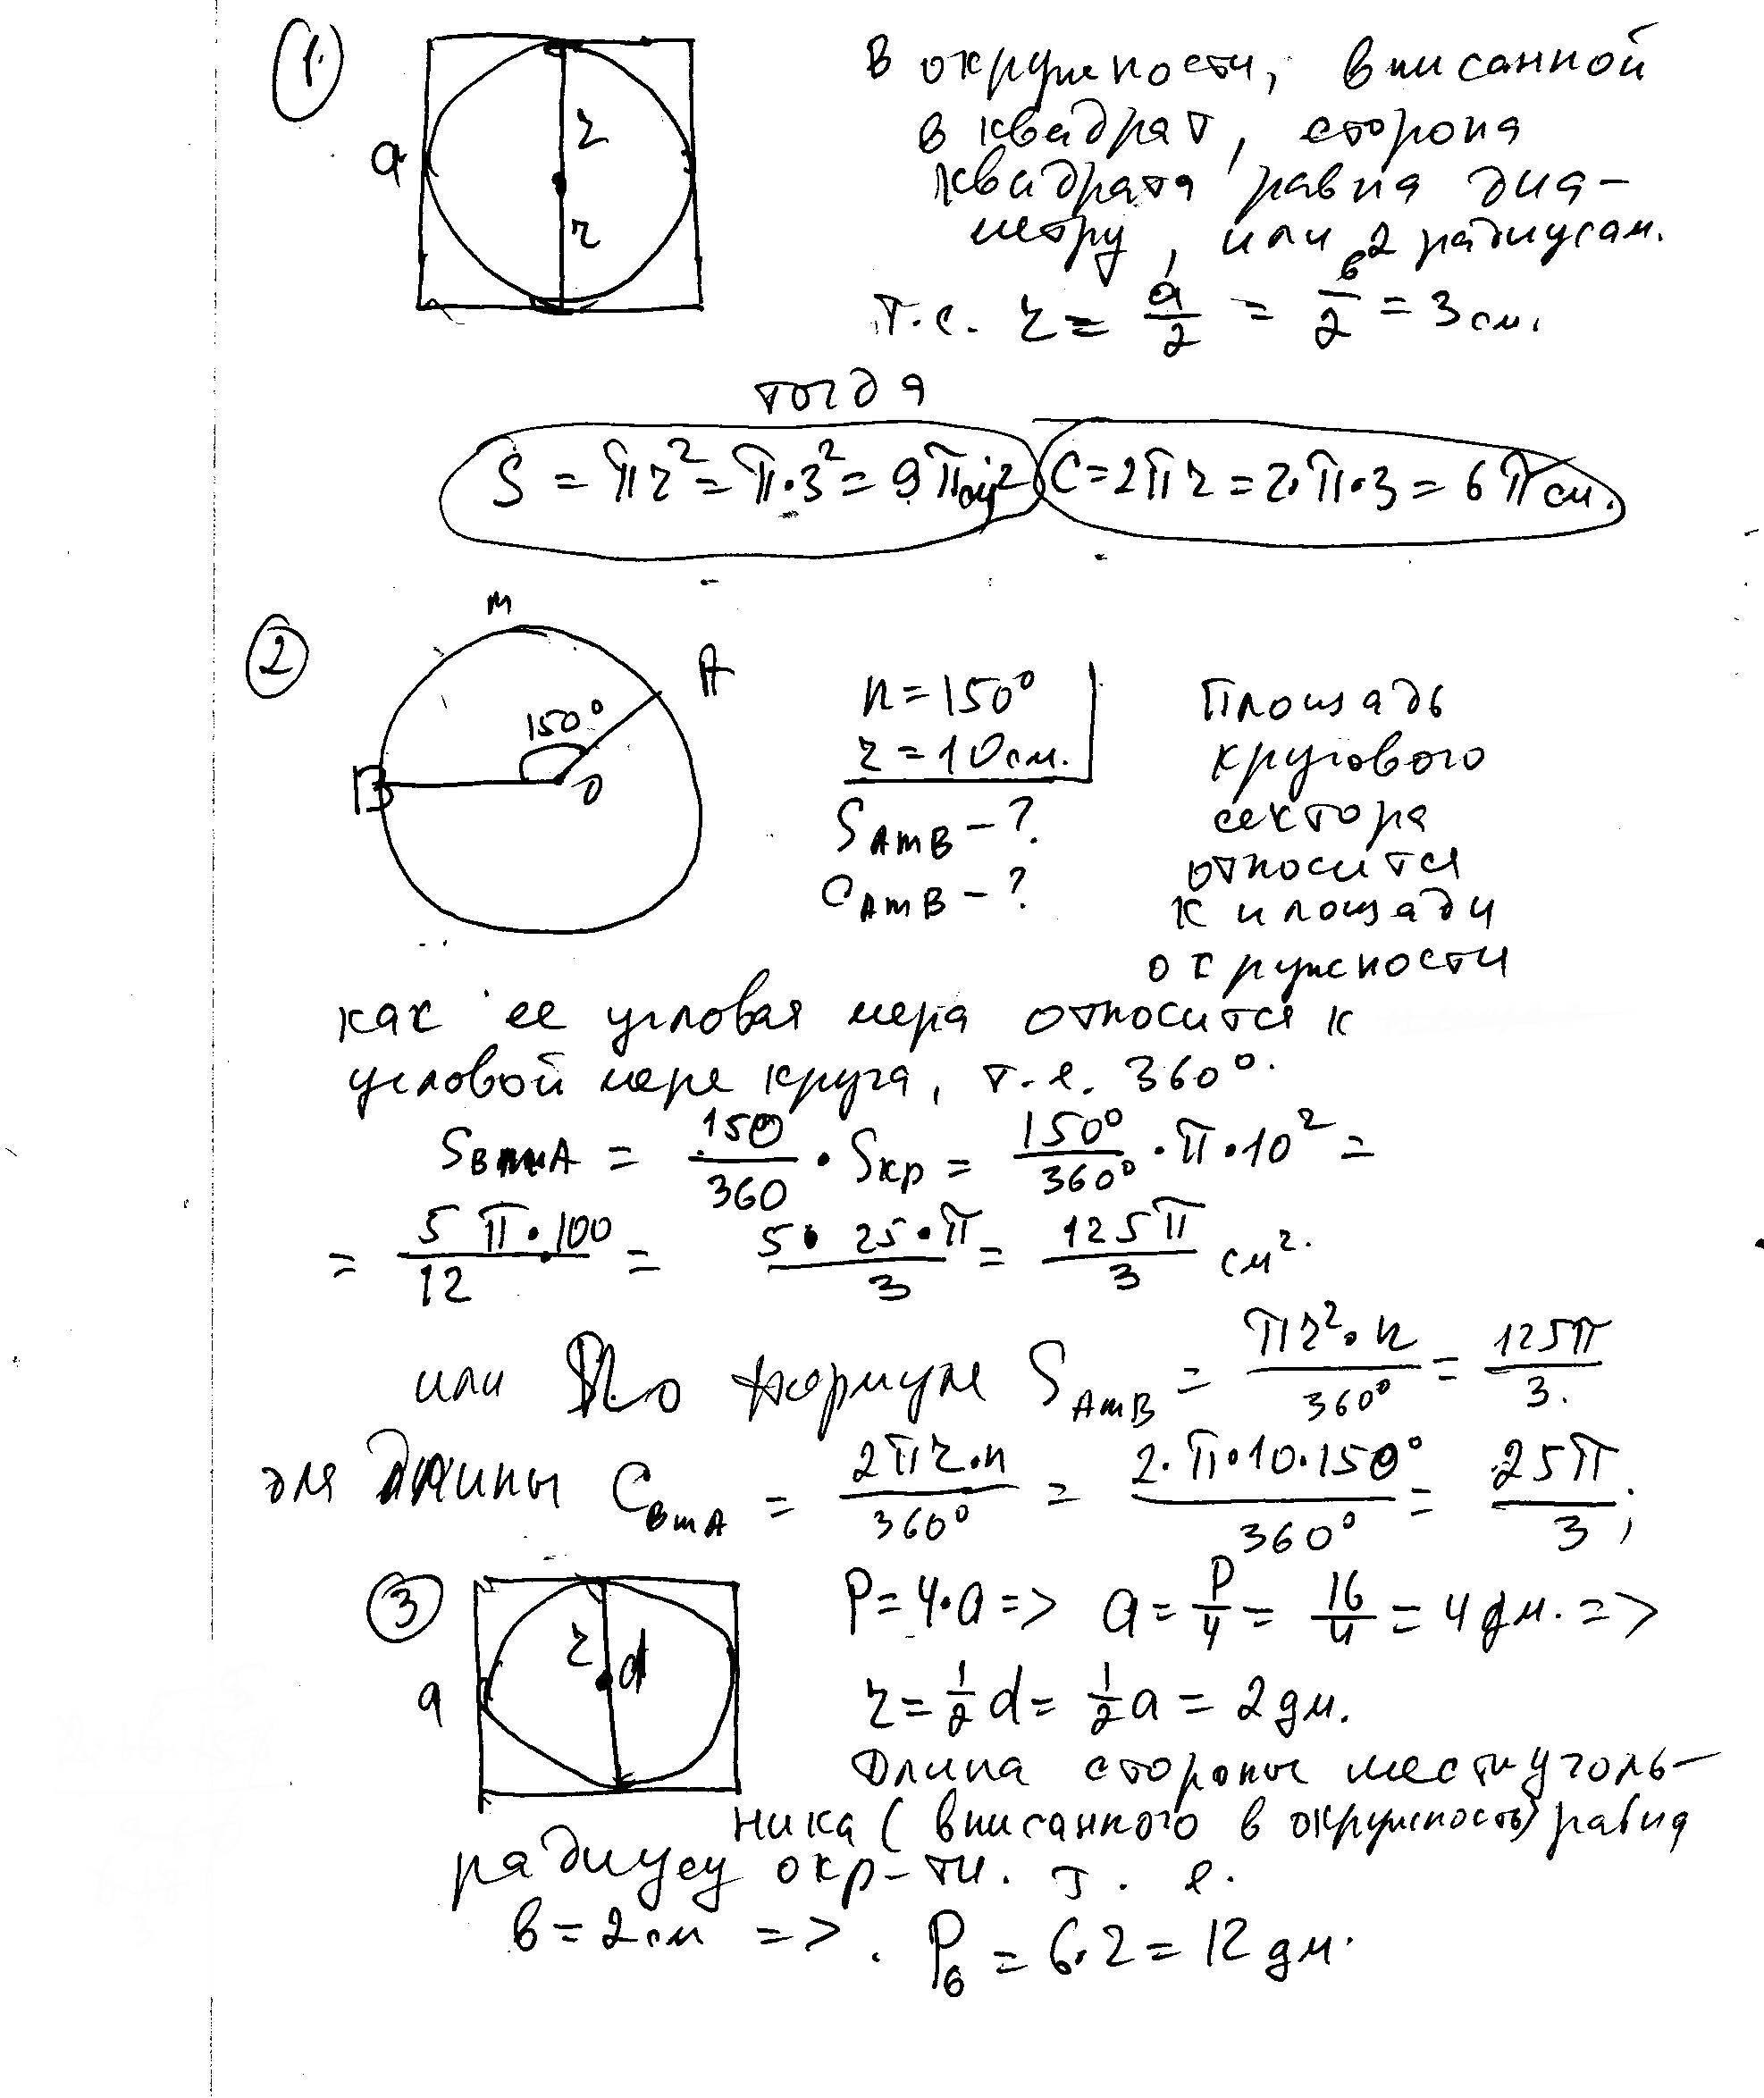 1.
a
r
r
В окружности, вписанной
в квадрат, сторона
квадрата равна диа-
метру, или 2 радиусам.
т.е. r = a/2 = 6/2 = 3 см.
тогда
S = πr² = π·3² = 9π см² C = 2πr = 2·π·3 = 6π см.
2
M
A
150°
B
O
n = 150°
r = 10 см.
S AmB - ?
C AmB - ?
Площадь
кругового
сектора
относится
к площади
окружности
как ее угловая мера относится к
угловой мере круга, т.е. 360°.
S BmA = 150/360 · Sкр = 150°/360° · π · 10² =
= 5 π · 100/12 = 5 · 25 · π/3 = 125π/3 см².
или По формуле S AmB = πr²·n/360° = 125π/3.
для Длины C BmA = 2πr·n/360° = 2·π·10·150°/360° = 25π/3;
3
a
r
d
P = 4·a => a = P/4 = 16/4 = 4 дм. =>
r = 1/2 d = 1/2 a = 2 дм.
Длина стороны шестиуголь-
ника (вписанного в окружность) равна
радиусу окр-ти. т. е.
в = 2 см => . P6 = 6·2 = 12 дм.